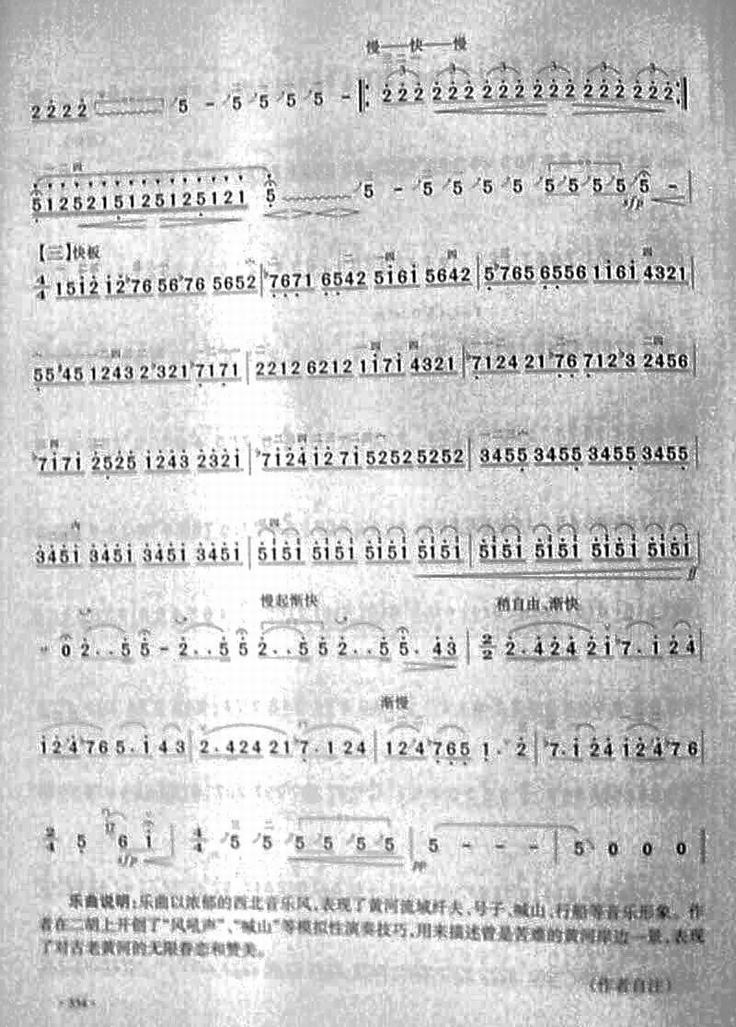 慢——快——慢
2 2 2 2 5 - 5 5 5 5 - 2 2 2 2 2 2 2 2 2 2 2 2 2 2 2 2 2 2
5 1 2 5 2 1 5 1 2 5 1 2 5 1 2 1 5 5 - 5 5 5 5 5 5 5 5 5 -
sfp
【三】快板
4/4 1 5 i 2 i 2 b7 6 5 6 b7 6 5 6 5 2 | b7 6 7 1 6 5 4 2 5 i 6 i 5 6 4 2 | 5 b7 6 5 6 5 5 6 1 i 6 i 4 3 2 1 |
5 5 #4 5 1 2 4 3 2 b3 2 1 b7 1 7 1 | 2 2 1 2 6 2 1 2 1 i 7 i 4 3 2 1 | b7 1 2 4 2 1 b7 6 7 1 2 b3 2 4 5 6 |
b7 i 7 i 2 5 2 5 i 2 4 3 2 3 2 i | b7 i 2 4 i 2 7 i 5 2 5 2 5 2 5 2 | 3 4 5 5 3 4 5 5 3 4 5 5 3 4 5 5 |
3 4 5 i 3 4 5 i 3 4 5 i 3 4 5 i | 5 i 5 i 5 i 5 i 5 i 5 i 5 i 5 i | 5 i 5 i 5 i 5 i 5 i 5 i 5 i 5 i |
ff
慢起渐快 稍自由、渐快
0 2 . . 5 5 - 2 . . 5 5 2 . . 5 5 2 . . 5 5 . 4 3 | 2/2 2 . 4 2 4 2 i b7 . i 2 4 |
渐慢
i 2 4 b7 6 5 . i 4 3 | 2 . 4 2 4 2 1 b7 . 1 2 4 | 1 2 4 b7 6 5 1 . 2 | b7 . i 2 4 i 2 4 b7 6 |
2/4 5 6 i | 4/4 5 5 5 5 5 5 | 5 - - - | 5 0 0 0
sfp pp
乐曲说明：乐曲以浓郁的西北音乐风，表现了黄河流域纤夫、号子、喊山、行船等音乐形象。作
者在二胡上开创了“风吼声”、“喊山”等模拟性演奏技巧，用来描述曾是苦难的黄河岸边一景，表现
了对古老黄河的无限眷恋和赞美。
（作者自注）
· 334 ·